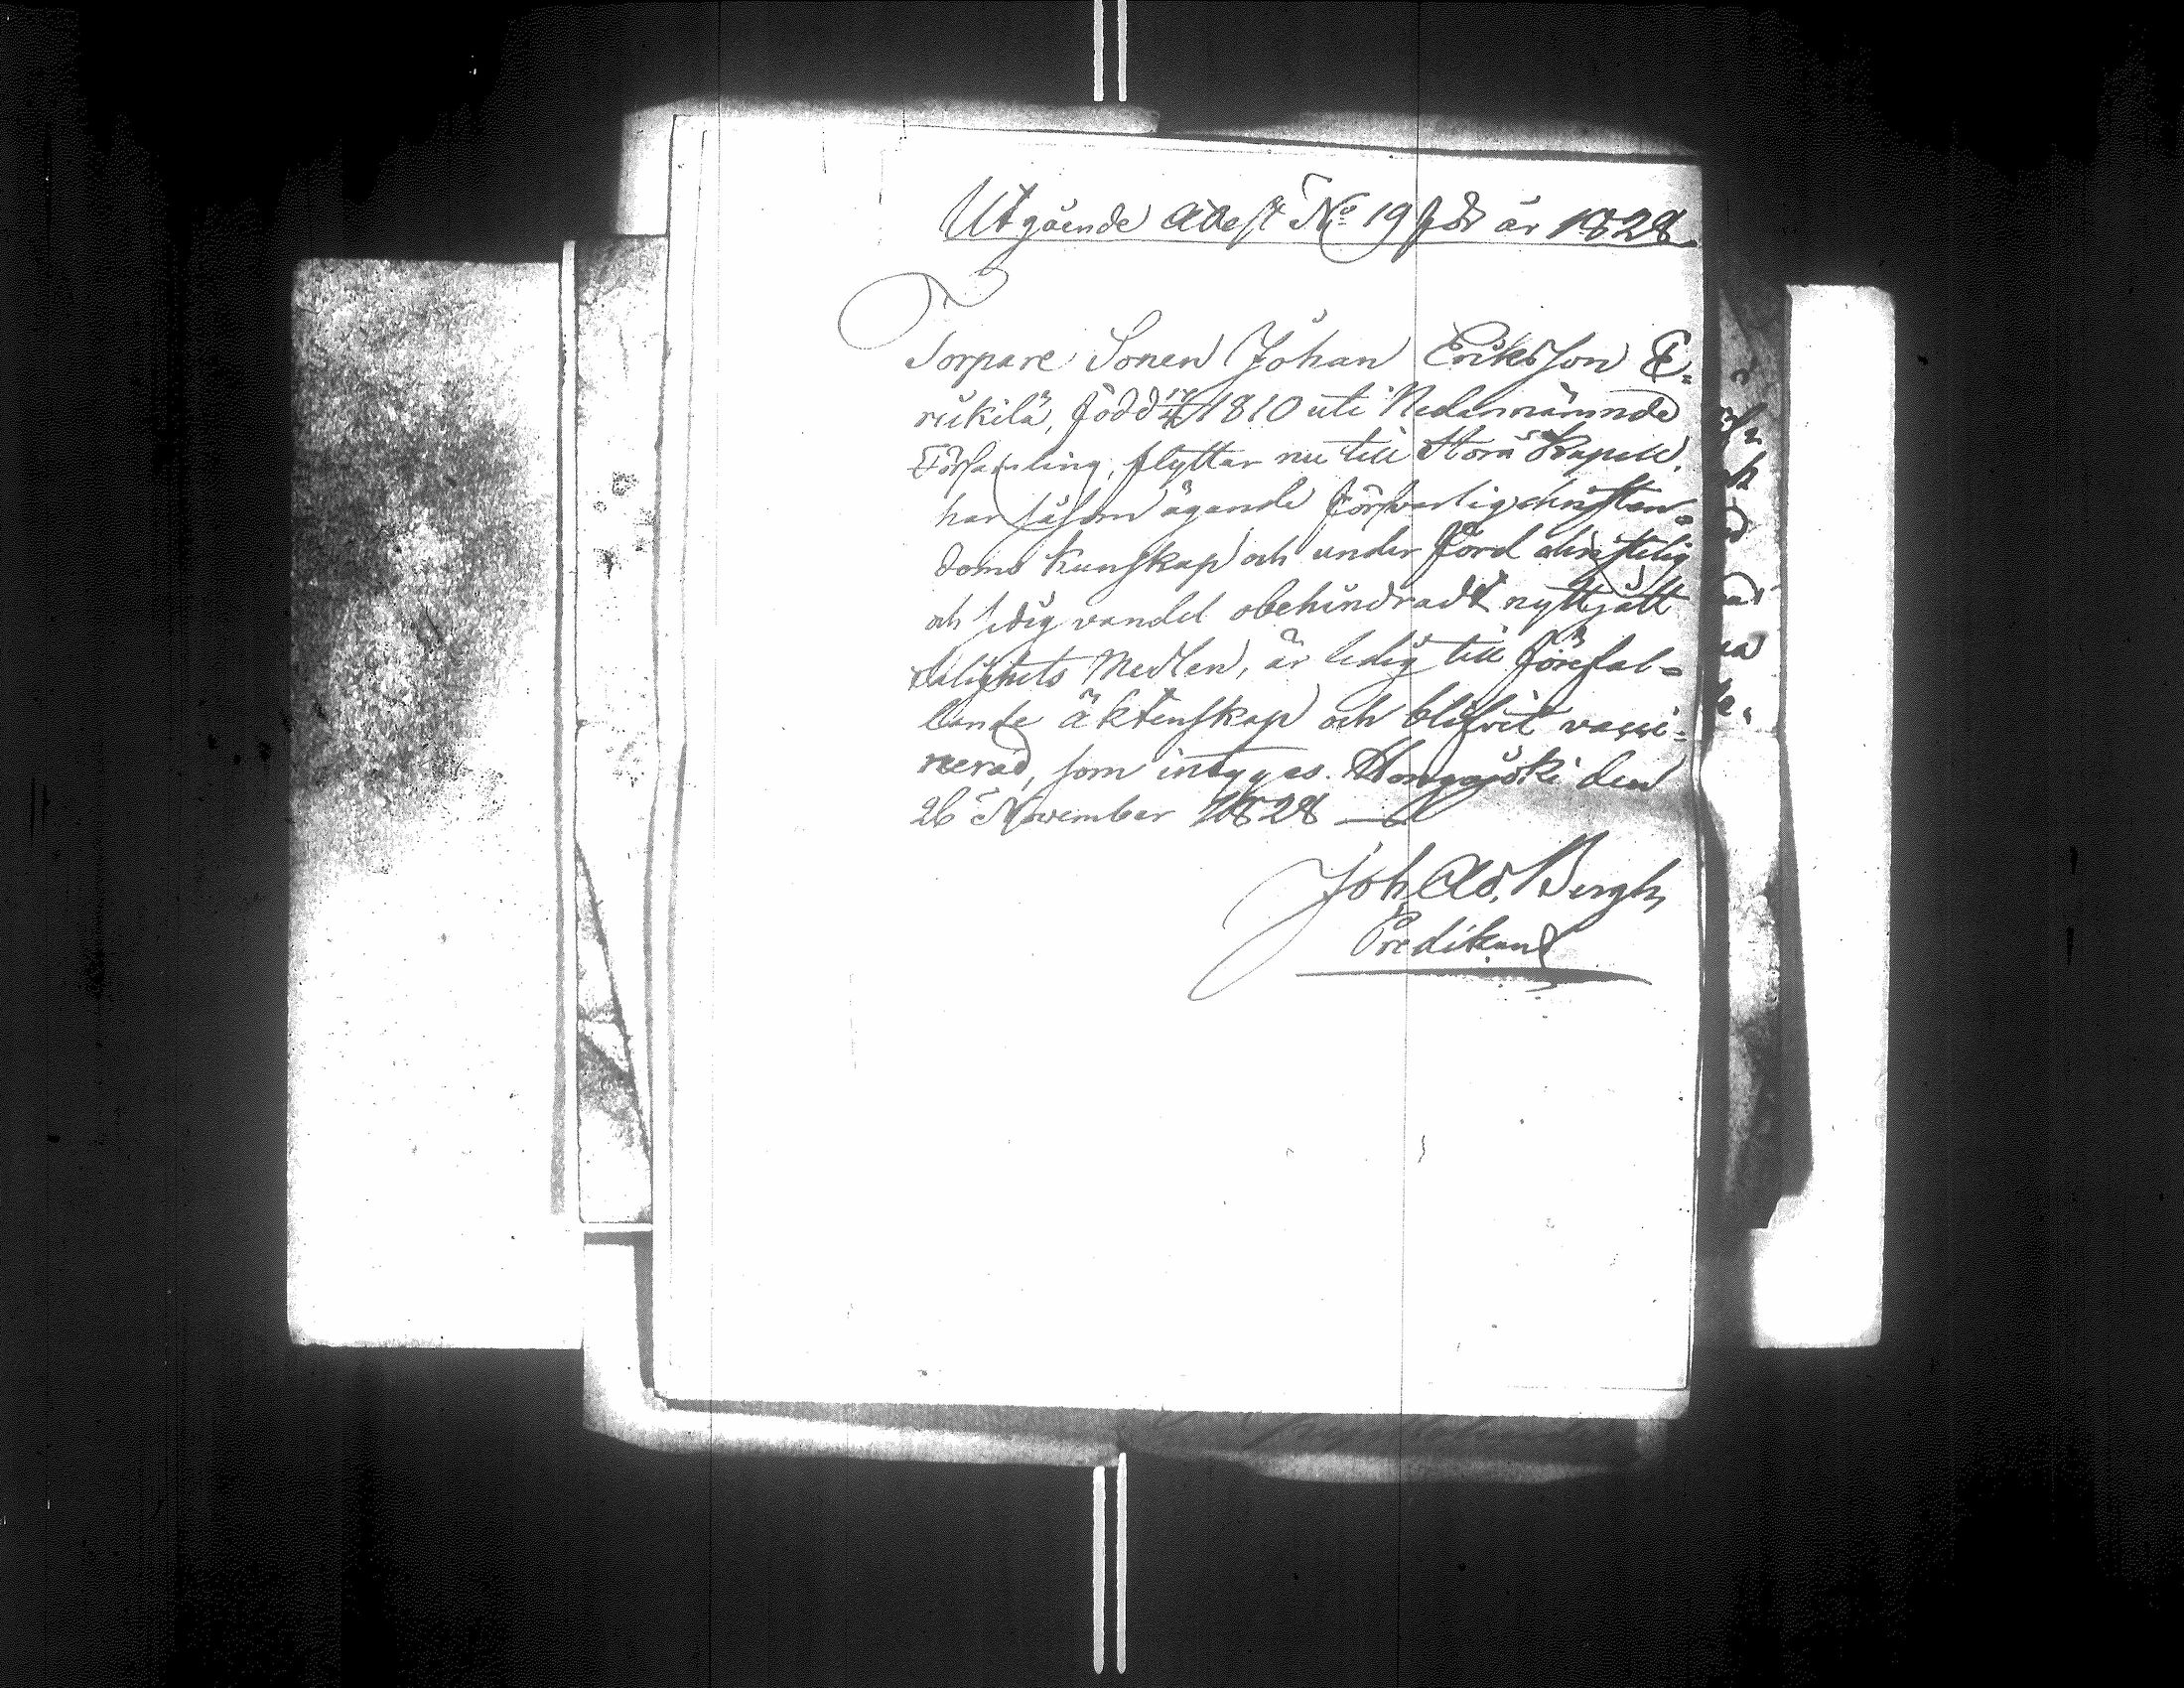 Utgående Attest No 19 för år 1828
Torpare Sonen Johan Eriksson E=
rikilä, född 17/4 1810 uti Nedannämnde
Församling, flyttar nu till Storå Kapell,
har såsom ägande försvarlig christen=
doms kunskap och under förd christelig
och sedig vandel obehindradt nyttjatt
salighets Medlen, är ledig till förefal=
lande äktenskap och blifvit vacci=
nerad, som intygas. Hongojoki den
26 November 1828
Joh Ad. Bergh
Predikant